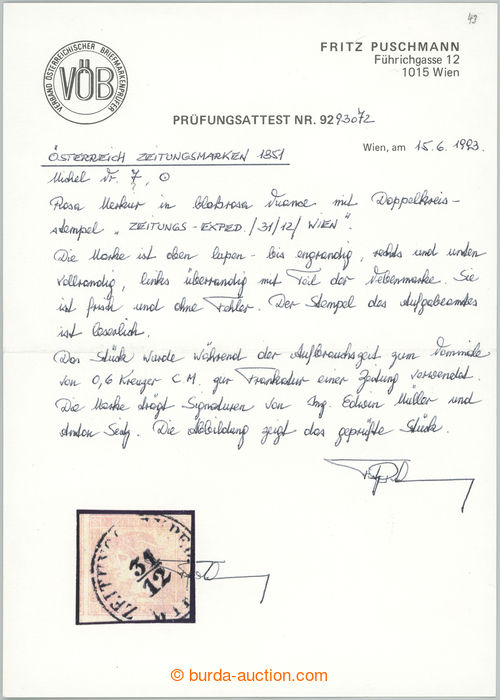 49
FRITZ PUSCHMANN
Führichgasse 12
1015 Wien
VERBAND ÖSTERREICHISCHER BRIEFMARKENPRÜFER
VÖB
PRÜFUNGSATTEST NR. 9293072
Wien, am 15.6.1993.
ÖSTERREICH ZEITUNGSMARKEN 1851
Michel Nr. 7, ⊙
Rosa Merkur in blaßrosa Nuance mit Doppelkreis-
stempel „ZEITUNGS-EXPED./31/12/WIEN".
Die Marke ist oben lupen- bis engrandig, rechts und unten
vollrandig, links überrandig mit Teil der Nebenmarke. Sie
ist frisch und ohne Fehler. Der Stempel des Aufgabeamtes
ist leserlich.
Das Stück wurde während der Aufbrauchszeit zum Nominale
von 0,6 Kreuzer C.M. zur Frankatur einer Zeitung verwendet.
Die Marke trägt Signaturen von Ing. Edwin Müller und
Anton Seitz. Die Abbildung zeigt das geprüfte Stück.
31
12
© burda-auction.com